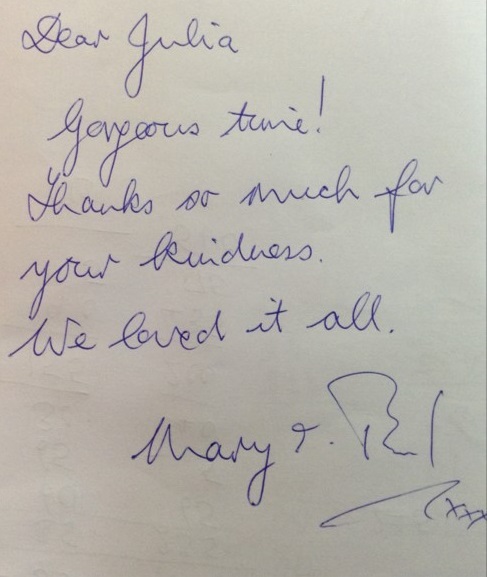 Dear Julia
Gorgeous time!
Thanks so much for
your kindness.
We loved it all.
Mary &
xxx